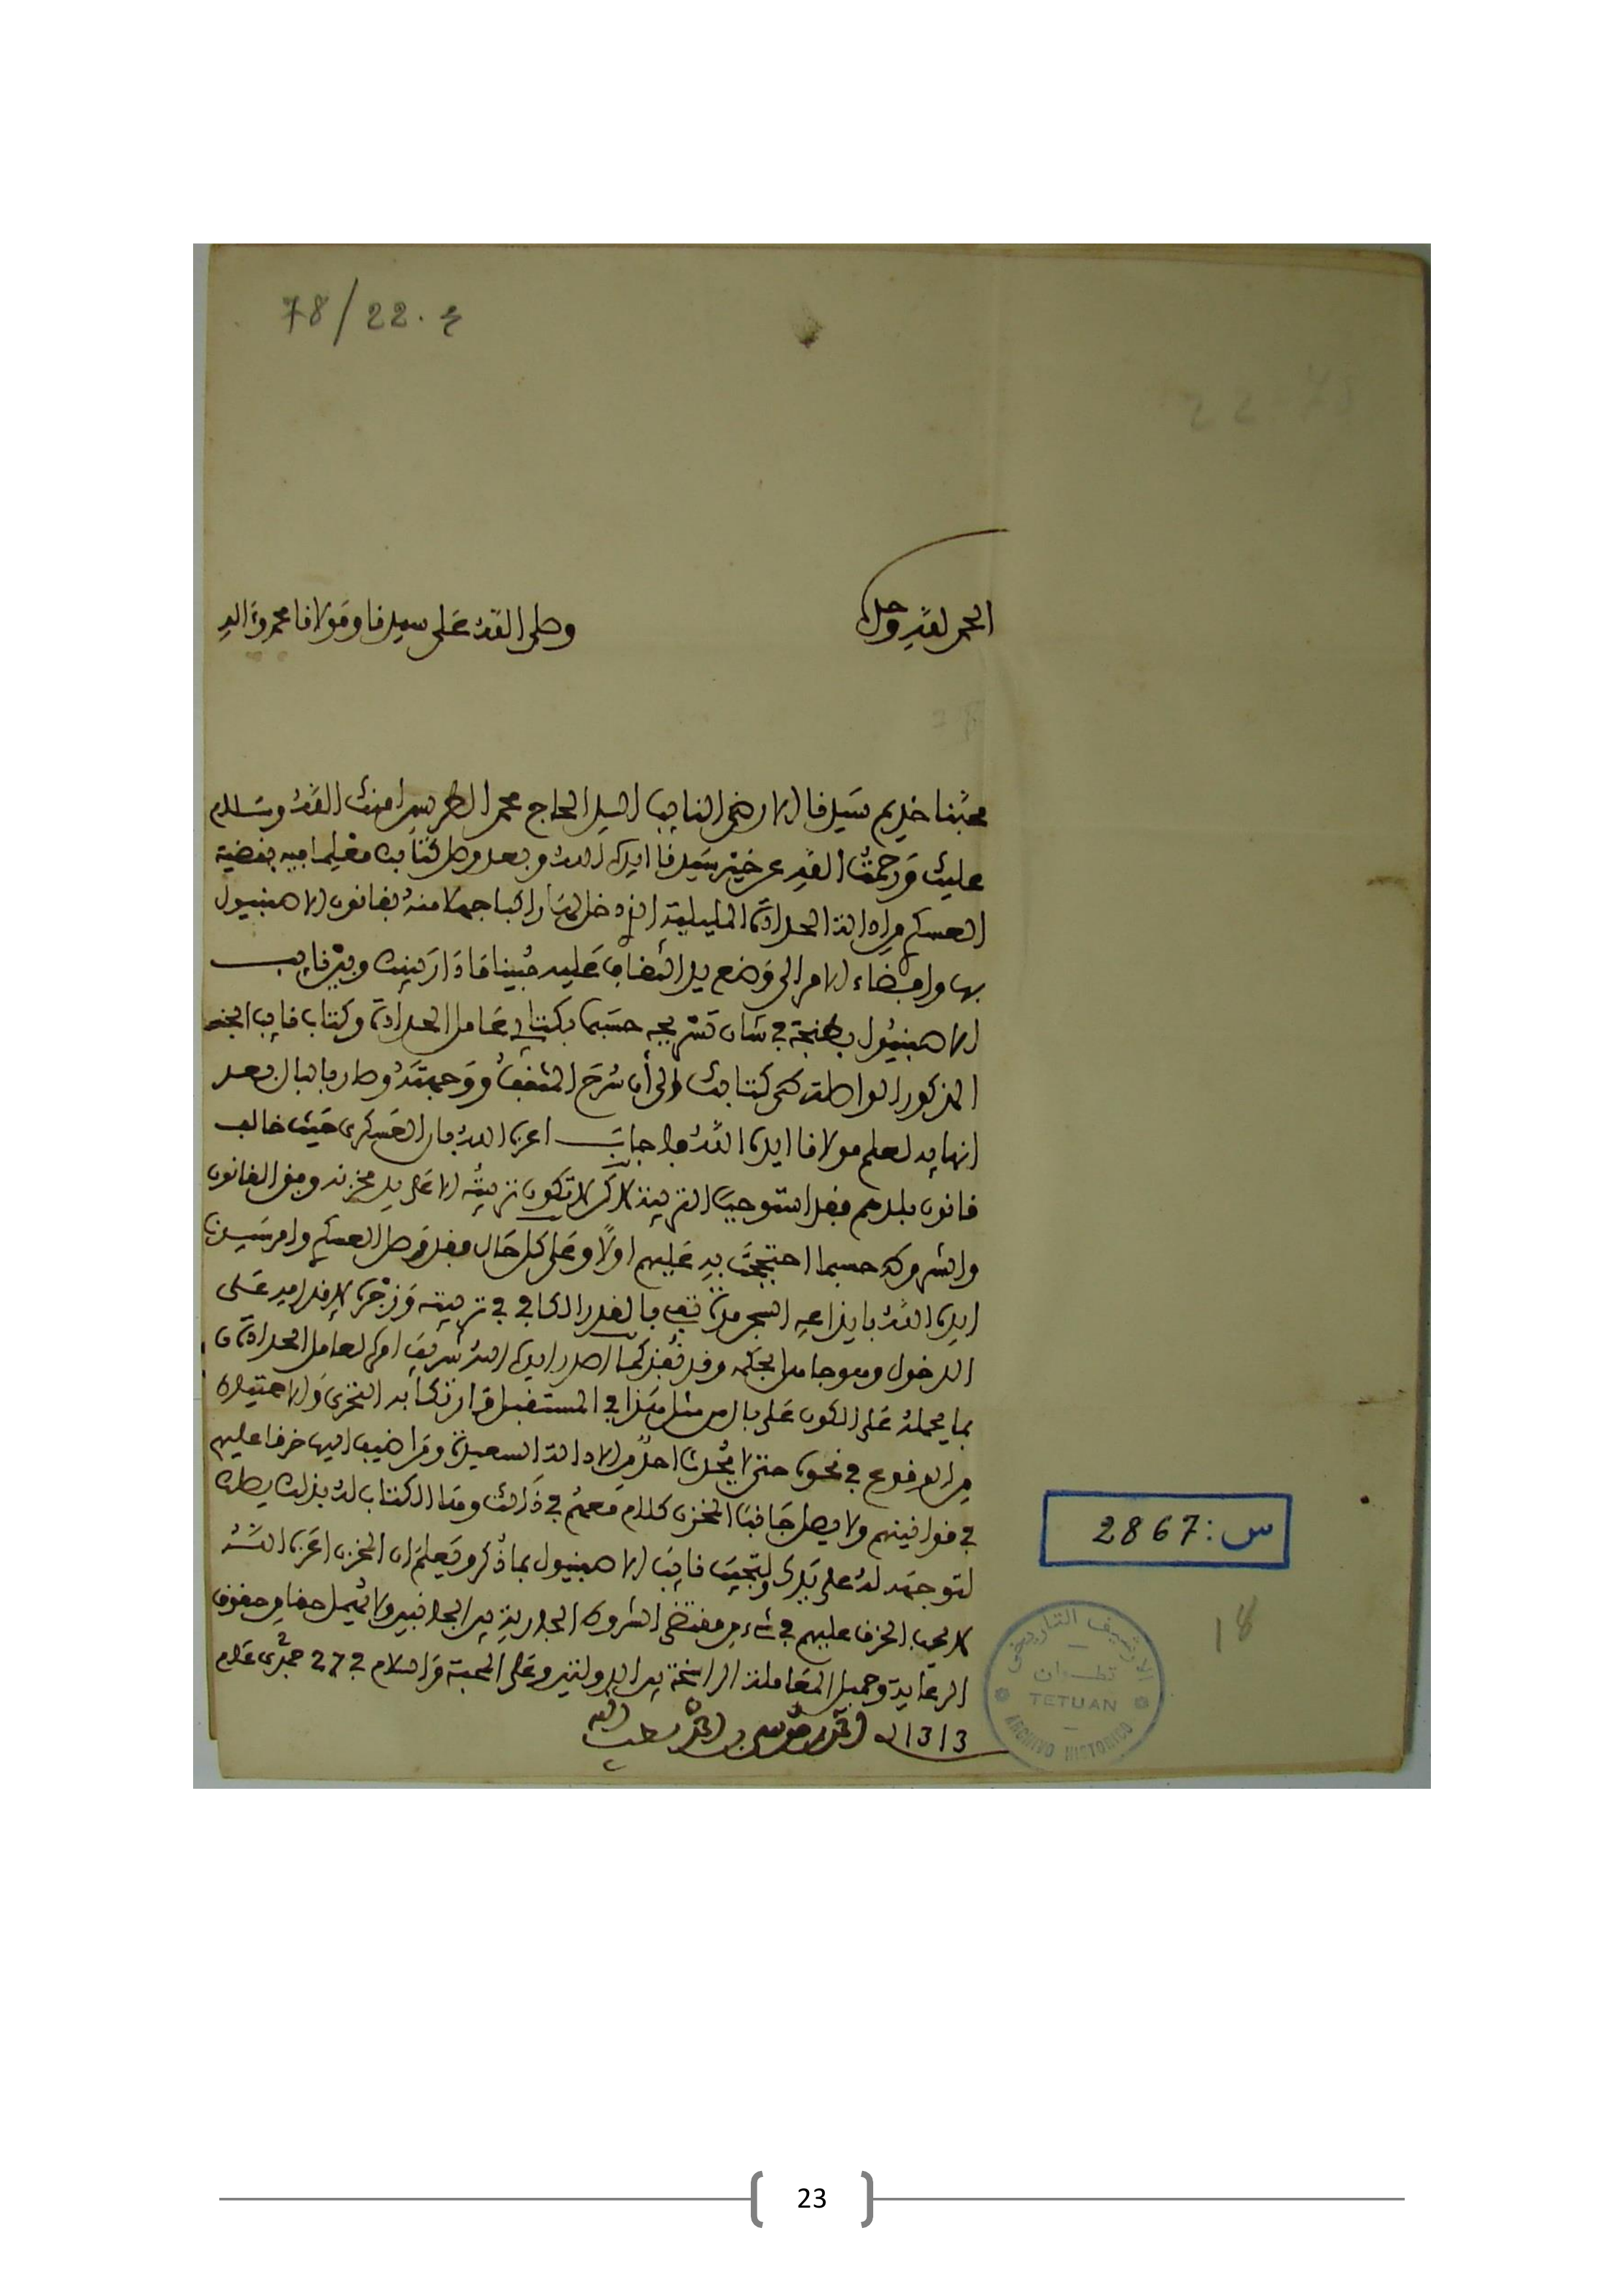 78/22. ع
الحمد لله وحده
وصلى الله على سيدنا ومولانا محمد وءاله
محبنا خديم سيدنا الارضى النايب السيد الحاج محمد الطريس امنك الله وسلام
عليك ورحمت الله عن خير سيدنا ايده الله وبعد وصل كتابك معلما فيه بقضية
العسكري من ايالة الحدادة المليلية الذي دخل لها راكبا جهلا منه بقانون الاصبنيول
بها وافضاء الامر الى وضع يد الثقاف عليه مبينا ما دار بينك وبين نايب
الاصبنيول بطنجة في شان تسريحه حسبما بكتابي عامل الحدادة وكتاب نايب الجنس
المذكور الواصلة طي كتابك والى أن سرح المثقف ووجهته وصار بالبال بعد
انهايه لعلم مولانا ايده الله فاجاب اعزه الله بان العسكري حيث خالف
قانون بلدهم فقد استوجب التربية لاكن لا تكون تربيته الا على يد مخزنه وفق القانون
والشروط حسبما احتججت به عليهم اولا وعلى كل حال فقد وصل العسكري وامر سيدنا
ايده الله بايداعه السجن مدة تفي بالقدر الكافي في تربيته وزجره لاقدامه على
الدخول من وجدة وقد نفذ كما اصدر ايده الله شريف امره لعامل الحدادة
بما يحمله على الكون على بال من مثل هذا في المستقبل وارتكابه التحري والاحتياط
من الوقوع في نحوه حتى لا يحدث احد من الايالة السعيدة ومن اضيف اليها خرقا عليهم
في قوانينهم ولا يصل جانب المخزن كلام معهم في ذالك وهذا الكتاب له بذلك يصلك
لتوجهه له على يدك ولتجيب نايب الاصبنيول بما ذكر ويعلم ان المخزن اعزه الله
لا يحب الخرق عليهم في شيء من مقتضى الشروط الجارية بين الجانبين ولا يهمل حقا من حقوق
الرعاية وجميل المعاملة الراسخة بين الدولتين وعلى المحبة والسلام في 27 جمدى 2 عام
1313 احمد بن موسى بن احمد لطف الله به
س: 2867
18
الارشيف التاريخي
تطوان
TETUAN
ARCHIVO HISTORICO
23